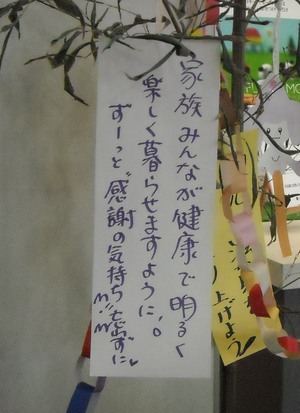 家族みんなが健康で明るく
楽しく暮らせますように。
ずーっと感謝の気持ち忘れずに
り上げよう